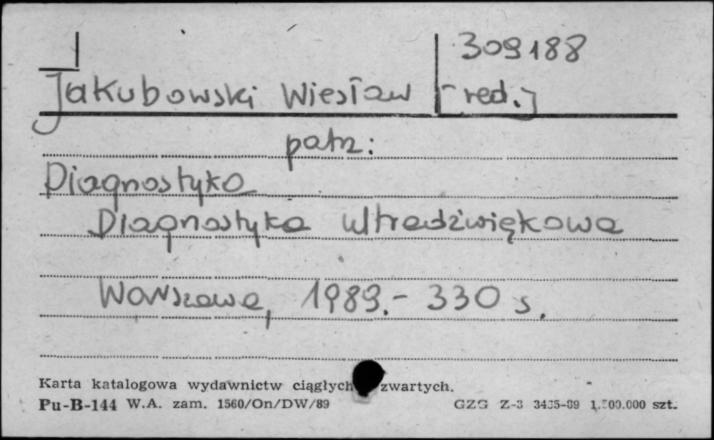 309188
Jakubowski Wiesław [red.]
patrz:
Diagnostyka
Diagnostyka ultradźwiękowa
Warszawa, 1989.- 330 s.
Karta katalogowa wydawnictw ciągłych zwartych.
Pu-B-144 W.A. zam. 1560/On/DW/89 GZG Z-3 szt.